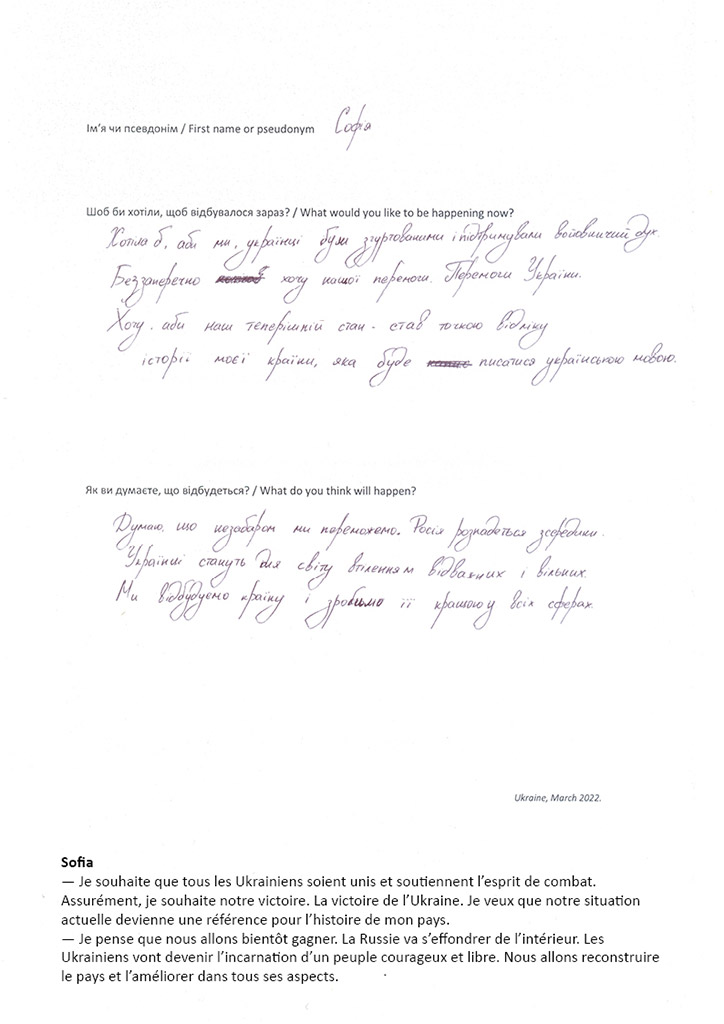 Ім'я чи псевдонім / First name or pseudonym Софія
Шоб би хотіли, щоб відбувалося зараз? / What would you like to be happening now?
Хотіла б, аби ми, українці були згуртованими і підтримували войовничий дух.
Беззаперечно хочу нашої перемоги. Перемоги України.
Хочу, аби наш теперішній стан - став точкою відліку
історії моєї країни, яка буде писатися українською мовою.
Як ви думаєте, що відбудеться? / What do you think will happen?
Думаю, що незабаром ми переможемо. Росія розпадеться зсередини.
Українці стануть для світу втіленням відважних і вільних.
Ми відбудуємо країну і зробимо її кращою у всіх сферах.
Ukraine, March 2022.
Sofia
— Je souhaite que tous les Ukrainiens soient unis et soutiennent l'esprit de combat.
Assurément, je souhaite notre victoire. La victoire de l'Ukraine. Je veux que notre situation
actuelle devienne une référence pour l'histoire de mon pays.
— Je pense que nous allons bientôt gagner. La Russie va s'effondrer de l'intérieur. Les
Ukrainiens vont devenir l'incarnation d'un peuple courageux et libre. Nous allons reconstruire
le pays et l'améliorer dans tous ses aspects.